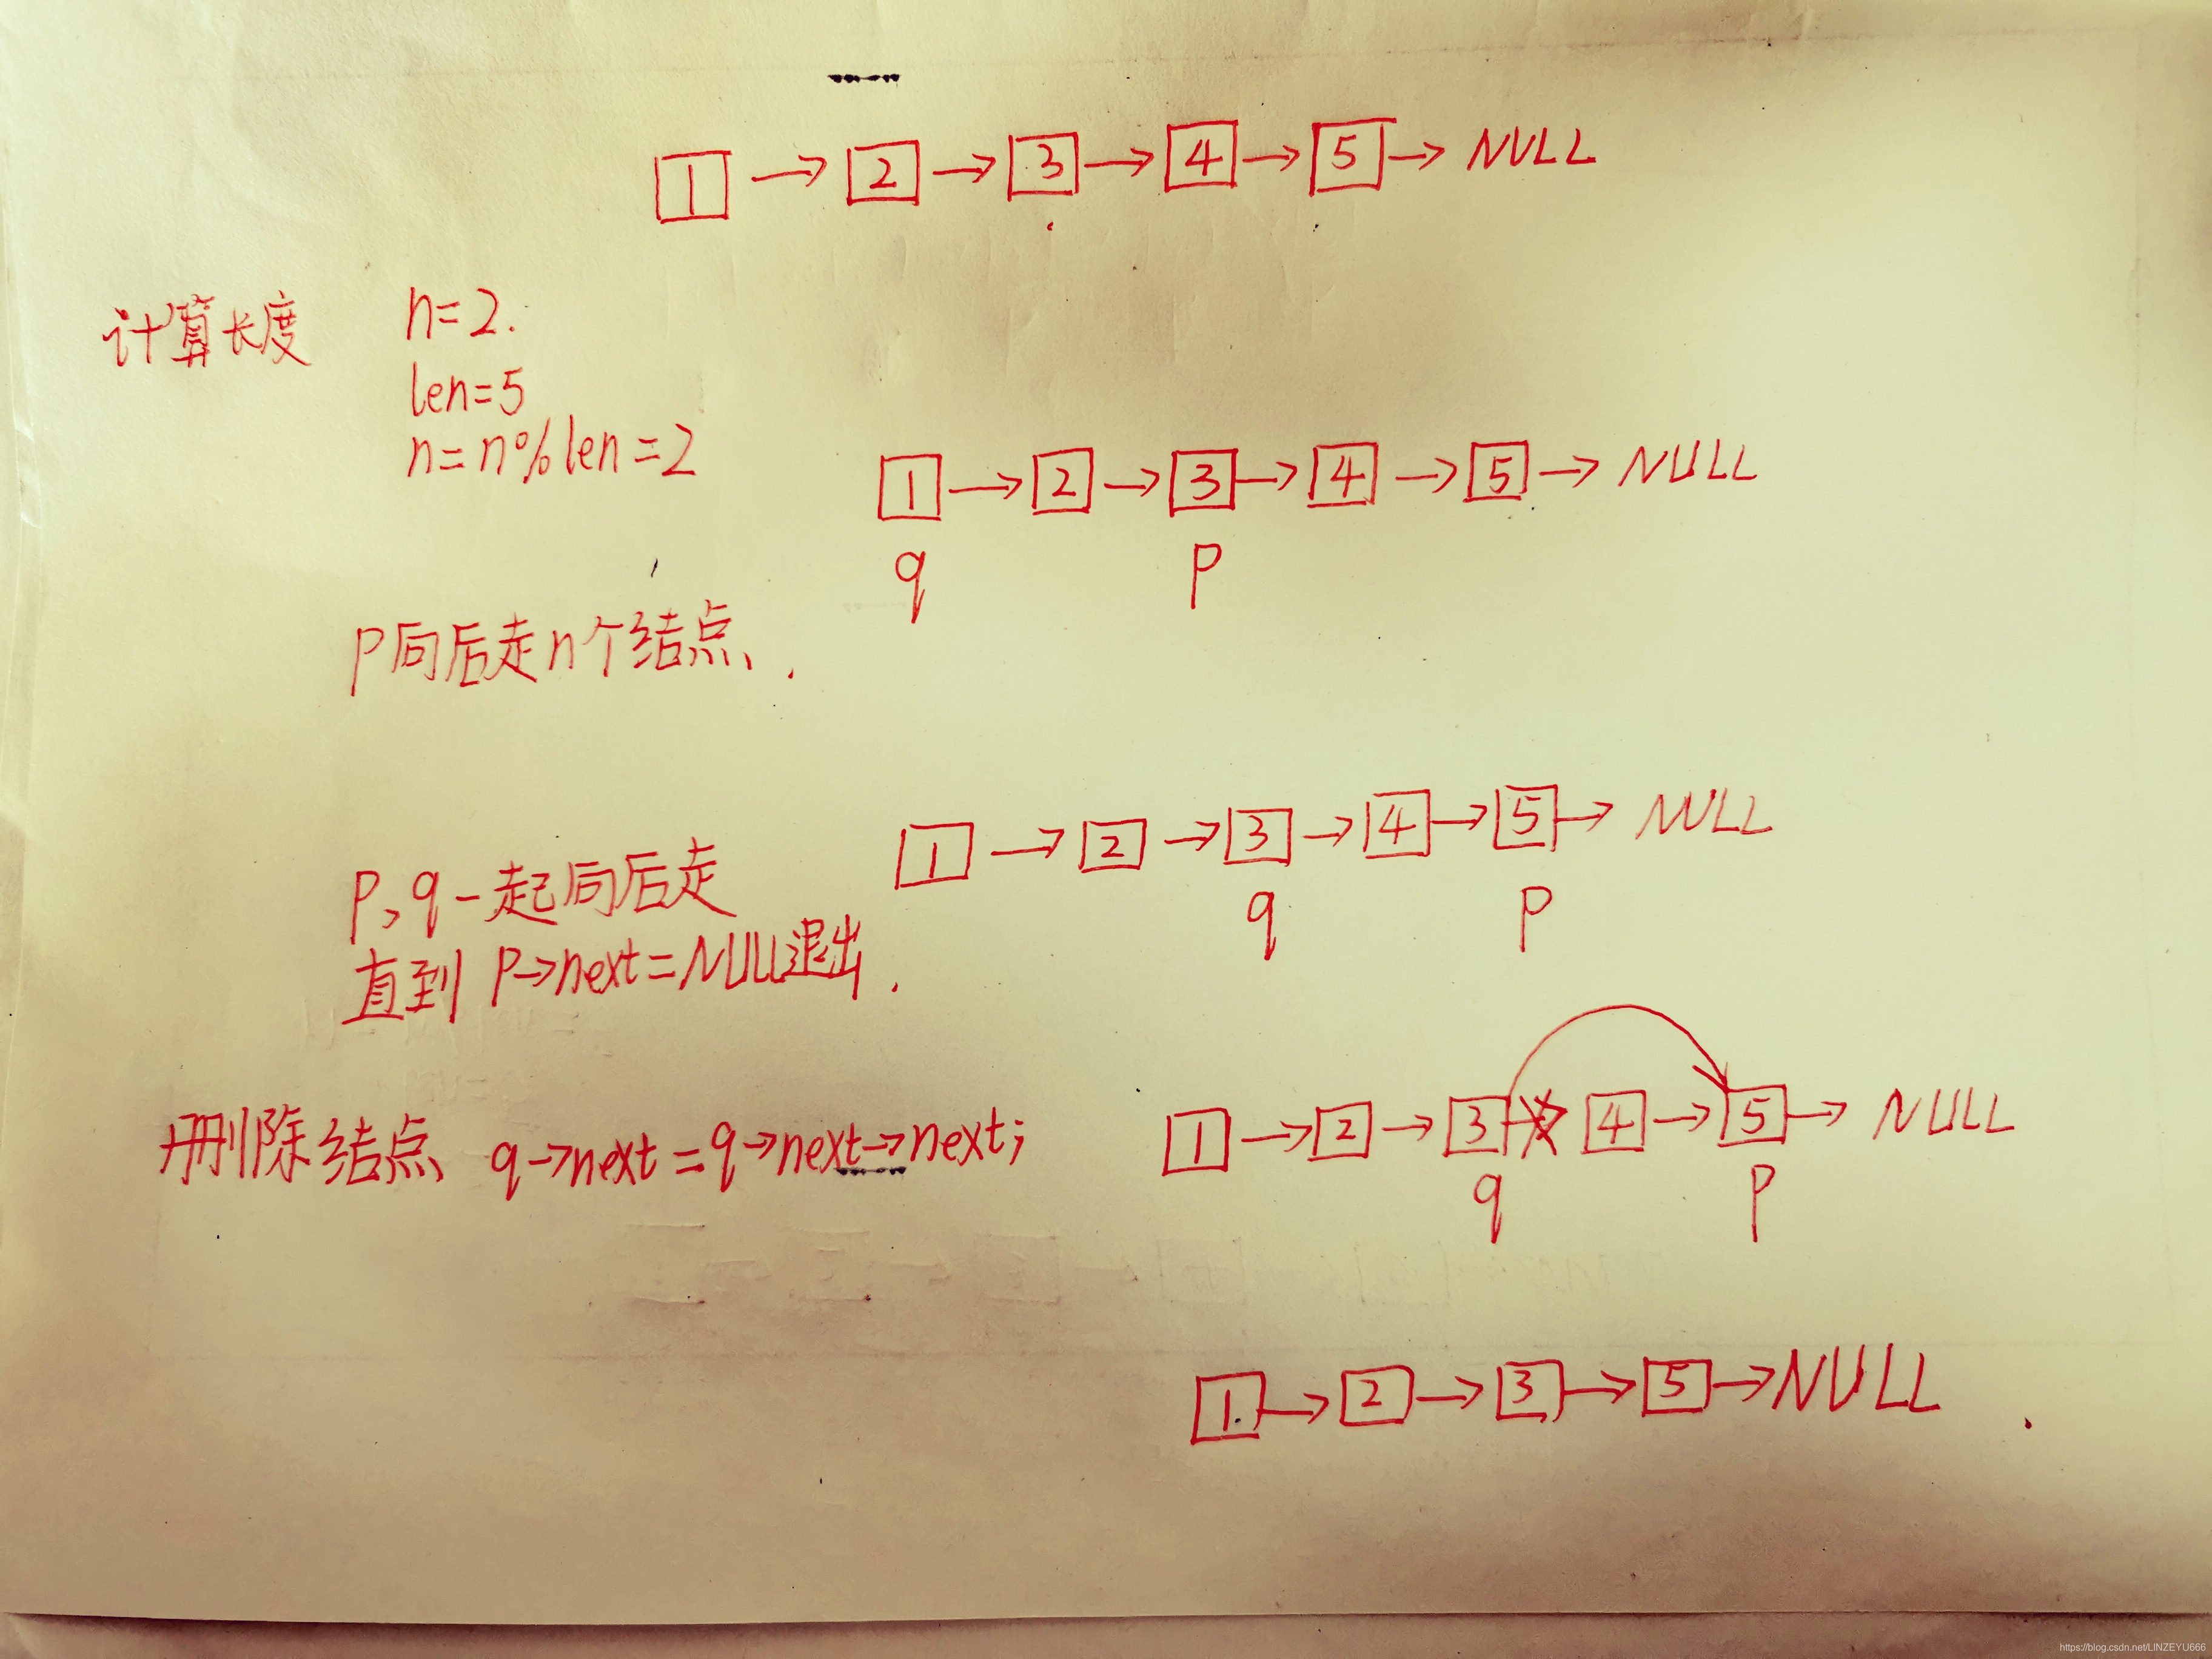 1 → 2 → 3 → 4 → 5 → NULL
计算长度 n=2.
len=5
n=n%len=2
1 → 2 → 3 → 4 → 5 → NULL
q p
p向后走n个结点.
1 → 2 → 3 → 4 → 5 → NULL
q p
p,q一起向后走
直到 p→next=NULL退出.
删除结点 q→next=q→next→next;
1 → 2 → 3 → 4 → 5 → NULL
q p
1 → 2 → 3 → 5 → NULL
https://blog.csdn.net/LINZEYU666